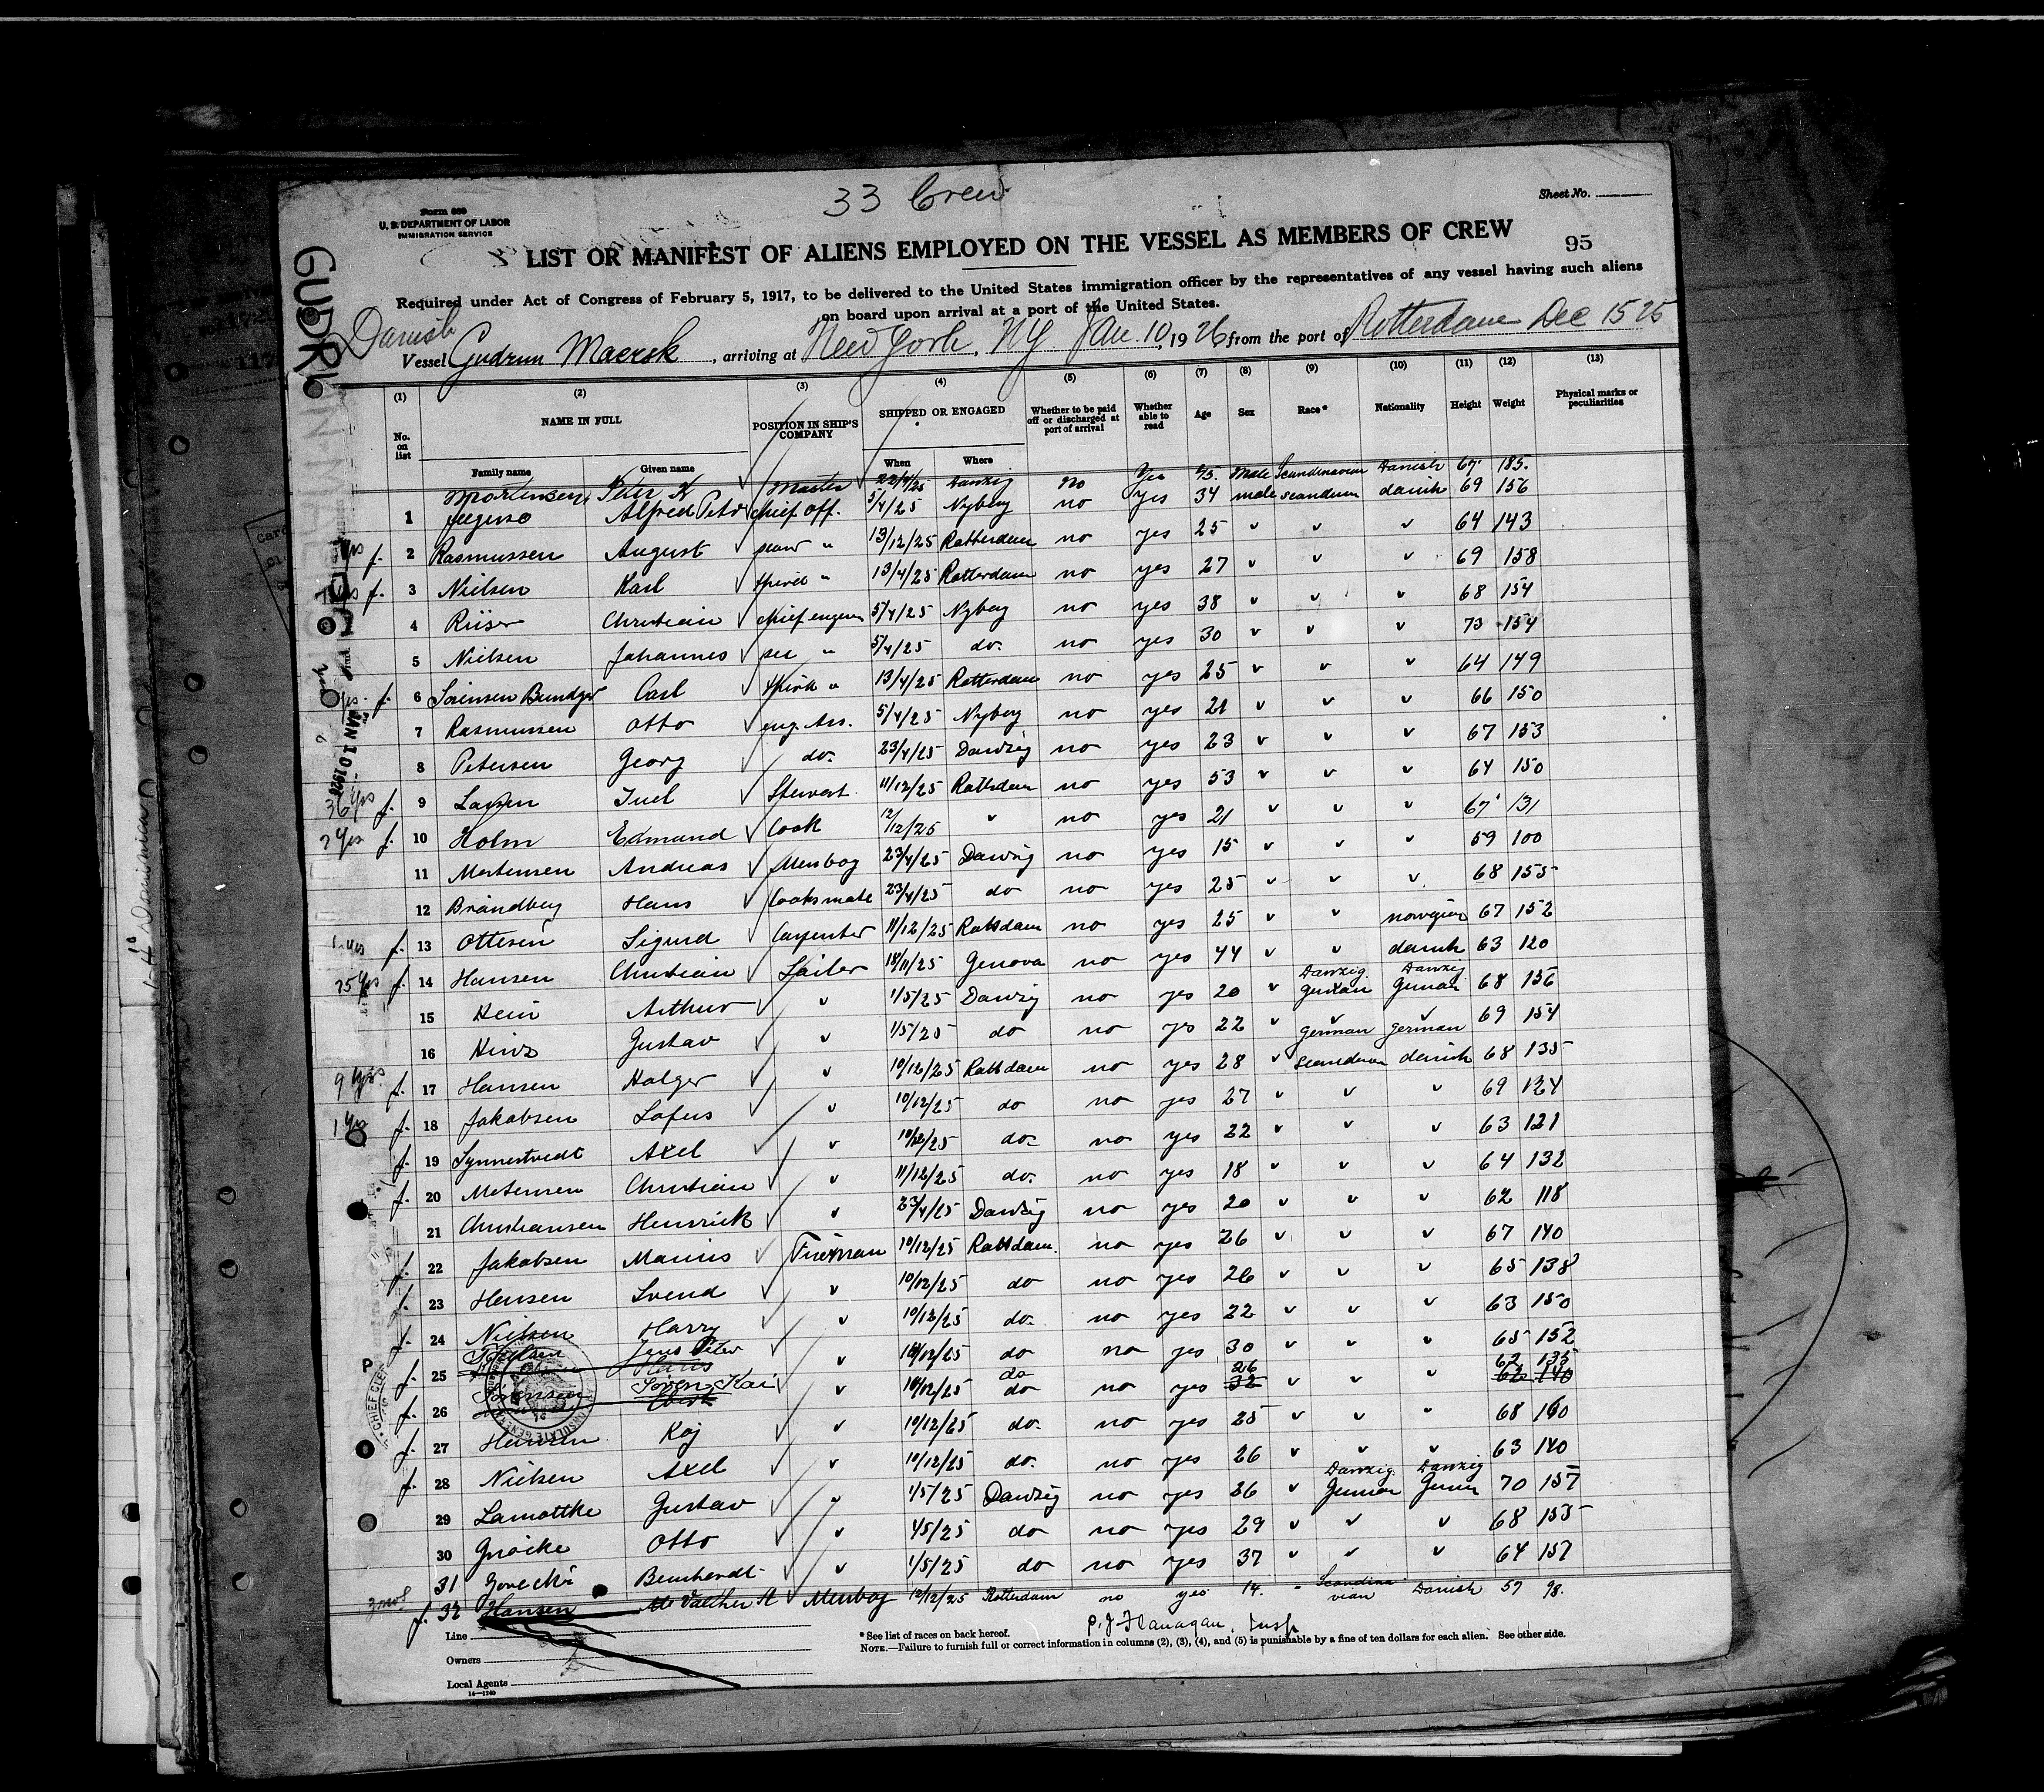 33 Crew
Sheet No.
Form 680
U. S. DEPARTMENT OF LABOR
IMMIGRATION SERVICE
LIST OR MANIFEST OF ALIENS EMPLOYED ON THE VESSEL AS MEMBERS OF CREW
95
Required under Act of Congress of February 5, 1917, to be delivered to the United States immigration officer by the representatives of any vessel having such aliens
on board upon arrival at a port of the United States.
Danish
Vessel Gudrun Maersk, arriving at New York, NY Jan. 10, 1926 from the port of Rotterdam Dec 15 25
(1) (2) (3) (4) (5) (6) (7) (8) (9) (10) (11) (12) (13)
No. on list NAME IN FULL POSITION IN SHIP'S COMPANY SHIPPED OR ENGAGED Whether to be paid off or discharged at port of arrival Whether able to read Age Sex Race* Nationality Height Weight Physical marks or peculiarities
Family name Given name When Where
Mortensen Peter K Master 22/4/25 Danzig no Yes 45. Male Scandinavian Danish 67 185.
1 Alfred Peter chief off. 5/4/25 Nyborg no yes 34 male scandin danish 69 156
2 Rasmussen August 13/12/25 Rotterdam no yes 25 64 143
3 Nielsen Karl 13/4/25 Rotterdam no yes 27 69 158
4 Riiser Christian chief 5/4/25 Nyborg no yes 38 68 154
5 Nielsen Johannes 5/4/25 do. no yes 30 73 154
6 Sörensen Carl 13/4/25 Rotterdam no yes 25 64 149
7 Rasmussen Otto eng. Ass. 5/4/25 Nyborg no yes 21 66 150
8 Petersen Georg do. 23/4/25 Danzig no yes 23 67 153
36 yrs f. 9 Juel Stewart 11/12/25 Rottsdam no yes 53 64 150
f. 10 Holm Edmund Cook 12/12/25 no yes 21 67 131
11 Mortensen Andreas Messboy 23/4/25 Danzig no yes 15 59 100
12 Brandberg Hans Cooksmate 23/4/25 do no yes 25 68 155
f. 13 Ottesen Sigurd Carpenter 11/12/25 Rottsdam no yes 25 norwegian 67 152
25 yrs f. 14 Hansen Christian Sailer 18/11/25 Genova no yes 44 danish 63 120
15 Hein Arthur 1/5/25 Danzig no yes 20 Danzig German Danzig German 68 156
16 Hinz Gustav 1/5/25 do no yes 22 german german 69 154
9 yrs. f. 17 Hansen Holger 10/12/25 Rottsdam no yes 28 danish 68 135
1 yrs f. 18 Jakobsen Lofus 10/12/25 do no yes 27 69 124
f. 19 Synnestvedt Axel 10/12/25 do. no yes 22 63 121
f. 20 Christian 11/12/25 do. no yes 18 64 132
21 Christiansen Henrick 23/4/25 Danzig no yes 20 62 118
f. 22 Jakobsen Marius Fireman 10/12/25 Rottsdam. no yes 26 67 140
f. 23 Hansen Svend 10/12/25 do no yes 26 65 138
f. 24 Nielsen Harry 10/12/25 do. no yes 22 63 150
f. 25 Jens Peter Hans 10/12/25 do no yes 30 65 152
f. 26 Sörensen Sören Kai 10/12/25 do do no yes 26 32 62 135 62 140
f. 27 Hansen Kaj 10/12/25 do. no yes 25 68 160
f. 28 Nielsen Axel 10/12/25 do. no yes 26 63 140
29 Lamottke Gustav 1/5/25 Danzig no yes 26 Danzig German Danzig German 70 157
30 Otto 1/5/25 do no yes 29 68 155
31 Bernhardt 1/5/25 do no yes 37 64 157
f. 32 Hansen Valther A Messboy 12/12/25 Rotterdam no yes 14. Scandinavian Danish 57 98.
P. J. Flanagan, Insp
Line
*See list of races on back hereof.
NOTE.—Failure to furnish full or correct information in columns (2), (3), (4), and (5) is punishable by a fine of ten dollars for each alien. See other side.
Owners
Local Agents
14—1240